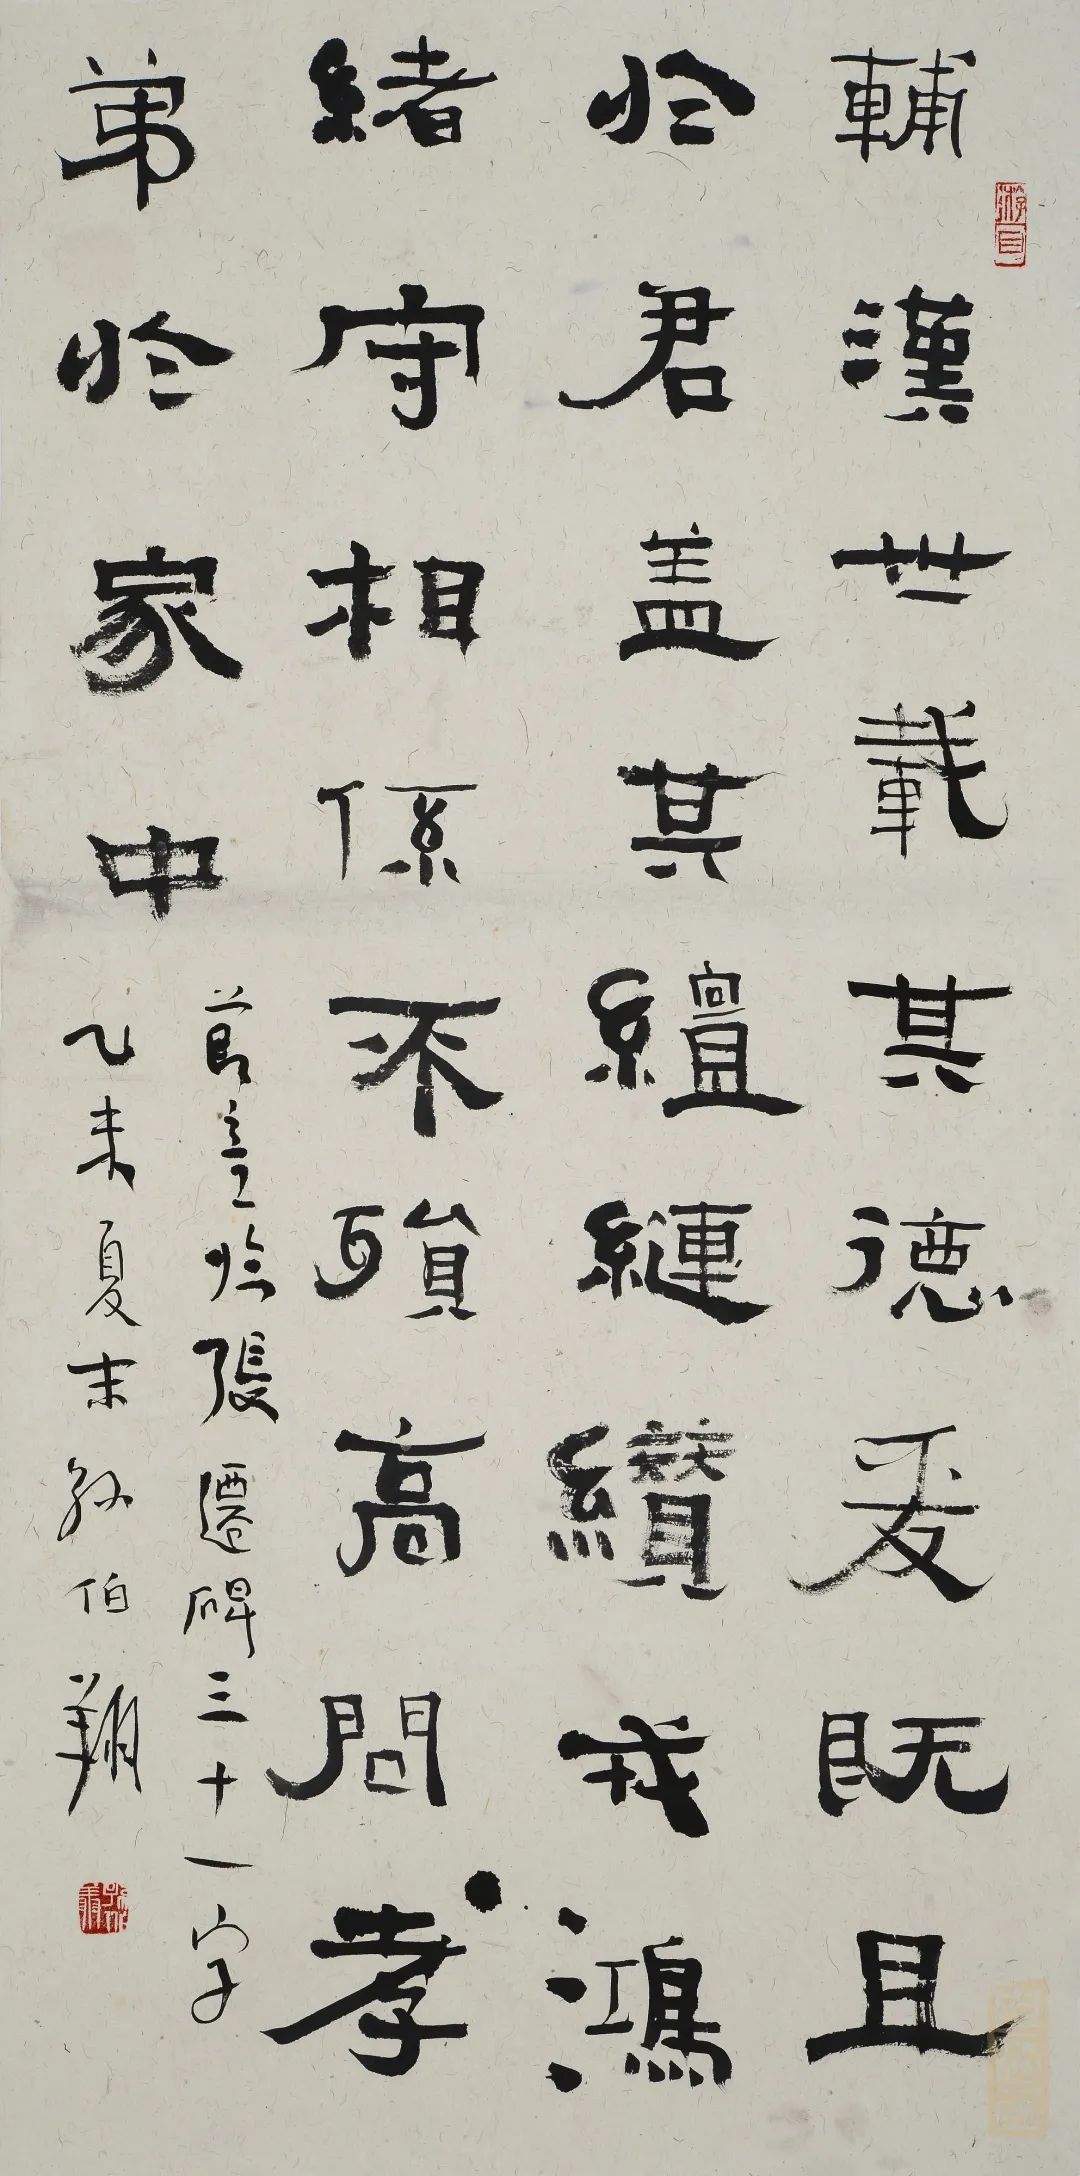 輔漢世載其德爰既且
於君盖其繵縺纘戎鴻
緒守相係不殞高問孝
弟於家中
節意临張遷碑三十一字
乙未夏末孙伯翔
游目